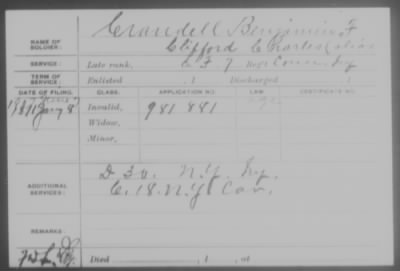 Crandell Benjamin F
NAME OF SOLDIER:
Clifford Charles (alias
SERVICE: Late rank, Co F 7 Reg't Conn Inf
TERM OF SERVICE: Enlisted , 1 Discharged , 1
DATE OF FILING. CLASS. APPLICATION NO. LAW. CERTIFICATE NO.
Invalid, 981 881
Widow,
Minor,
ADDITIONAL SERVICES:
D 30. N.Y. Inf.
C. 18. N.Y. Cav.
REMARKS:
Died , 1 , at